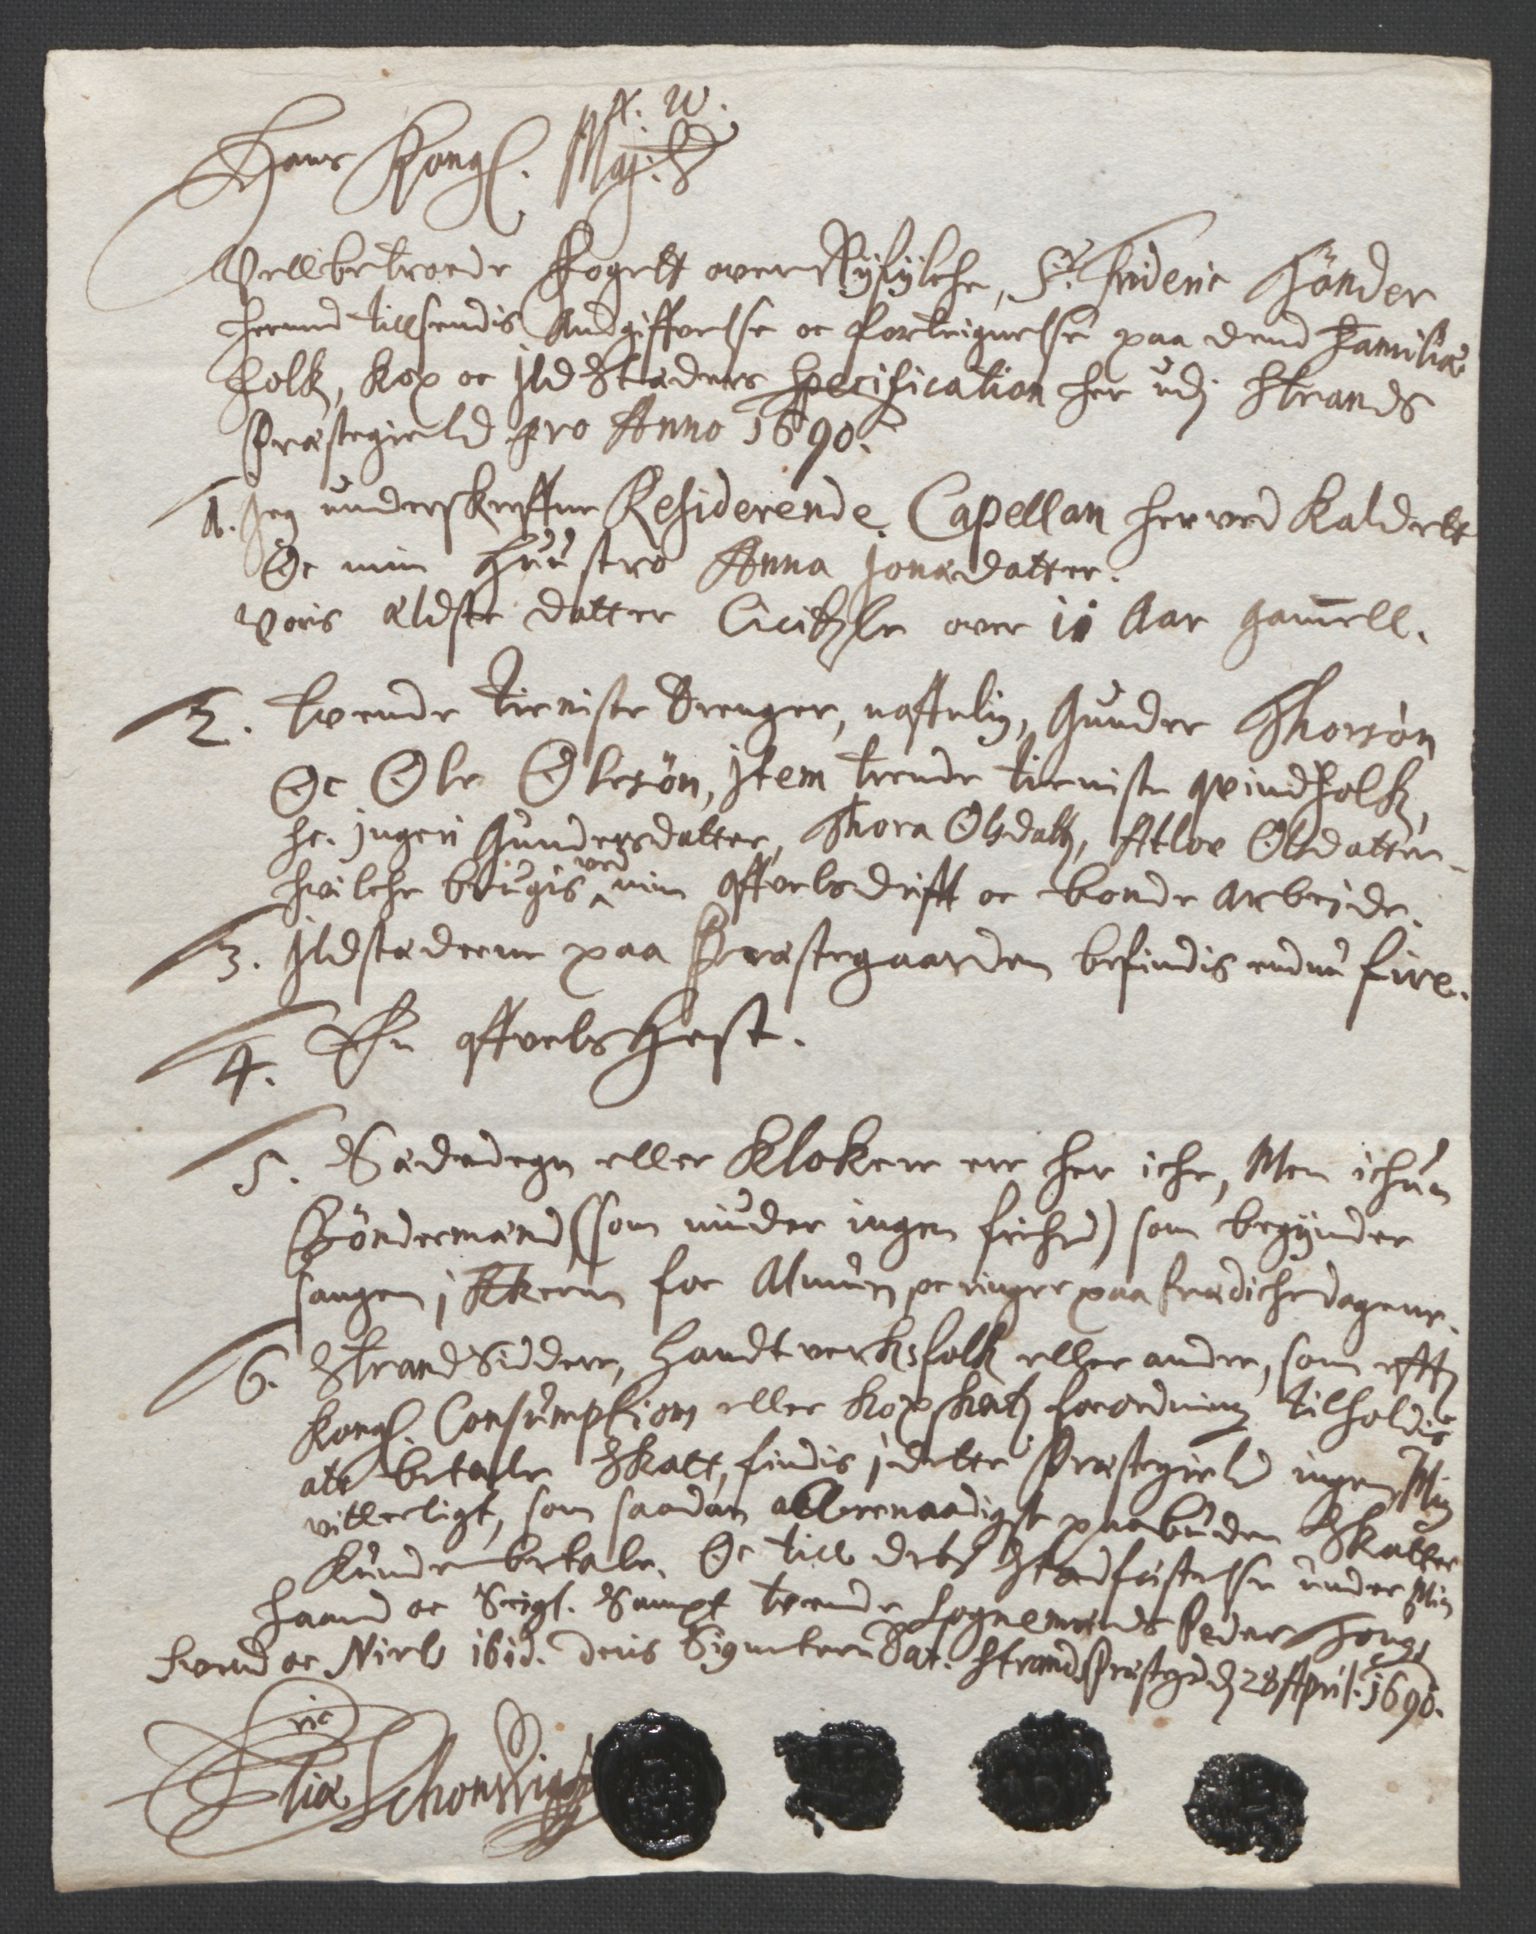 N. W.
Hans Kongl. Maj:ts
Vellbetroede Fogett over Ryfylche, Sr. Frideric Hönder
hermed tillsendis Andgiffvelse oc forteignelse paa dend Familiæ
folk, Kop oc Ildstæders Specification her udj Strands
Præstegield pro Anno 1690.
1. Jeg underskreffne Residerende Capellan her ved Kaldett
Oc min Huustro Anna Jonædatter.
Voris ældste datter Cicitzle over 10 Aar gamell.
2. Tvende tieniste Drenger, nafnlig, Gunder Thorsön
Oc Ole Olesön, Item trende tieniste qvindfolk,
he. Ingeri Gundersdatter, Thora Olsdatt, Atloe Olsdatter
hvilche brugis ved min affvelsdrifft oc bonde arbejde.
3. Ildstæderne paa Præstegaarden befindis endnu fire.
4. En affvels Hest.
5. Sædedegn eller Klokere ere her iche, Men ichun
Böndermænd (som niuder ingen frihed) som begynder
sangen j Kkerne for Almuen oc ringer paa Prædichedagene.
6. Strandsiddere, Handtverksfolk eller andre, som efft
Kongl. Consumption eller Kopskatt forordning tilholdis
att betale Skatt, findis j dette Præstegield ingen Mig
vitterligt, som saadan allernaadigst paabuden Skatter
Kunde betale. Oc till dets Stadfæstelse under Min
haand oc Seigl. Sampt tvende Sognemends Peder
oc Niels ibid. deris Signeter Dat. Strands Præstegrd d 28 April. 1690.
Elias Schonvig